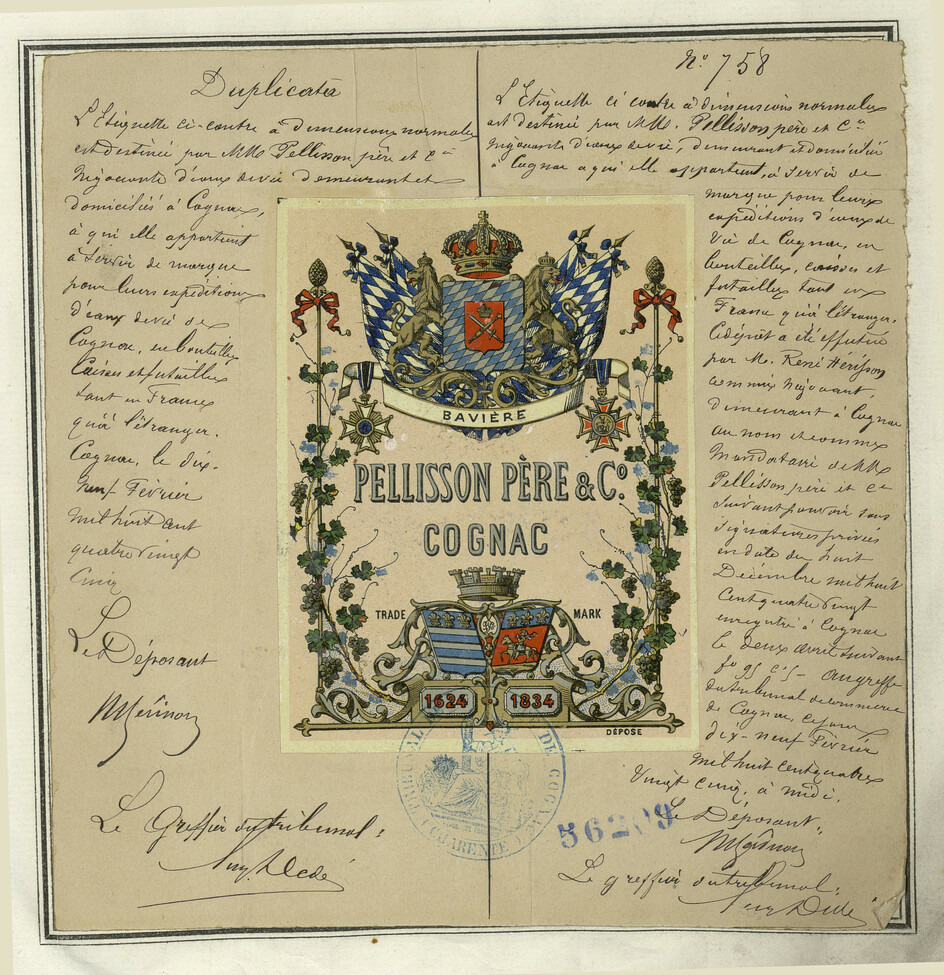 Duplicata
L'Etiquette ci-contre à dimensions normales
est destinée par MM. Pellisson père et Cie
Négociants d'eaux de vie demeurant et
domiciliés à Cognac,
à qui elle appartient
à servir de marque
pour leurs expéditions
d'eaux de vie de
Cognac, en bouteilles
Caisses et futailles
tant en France
qu'à l'étranger.
Cognac, le dix-
neuf Février
mil huit cent
quatre vingt
cinq
Le Déposant
Le Greffier du tribunal:
N° 758
L'Etiquette ci contre à dimensions normales
est destinée par MM. Pellisson père et Cie
Négociants d'eaux de vie, demeurant et domiciliés
à Cognac a qui elle appartient, à servir de
marque pour leurs
expéditions d'eaux de
Vie de Cognac, en
bouteilles, caisses et
futailles tant en
France qu'à l'étranger.
Ce dépôt a été effectué
par M. René Hérisson
commis négociant,
demeurant à Cognac
au nom et comme
Mandataire de MM.
Pellisson père et Cie
suivant pouvoir sous
signatures privées
en date du huit
Décembre mil huit
cent quatre vingt
enregistré à Cognac
le deux avril suivant
fo 95 cs - au greffe
du tribunal de commerce
de Cognac, ce jour
dix-neuf Février
mil huit cent quatre
vingt cinq, à midi.
Le Déposant,
Le greffier du tribunal:
BAVIÈRE
PELLISSON PÈRE & Co.
COGNAC
TRADE MARK
1624 1834
DÉPOSÉ
TRIBUNAL DE COGNAC
CHARENTE
56209